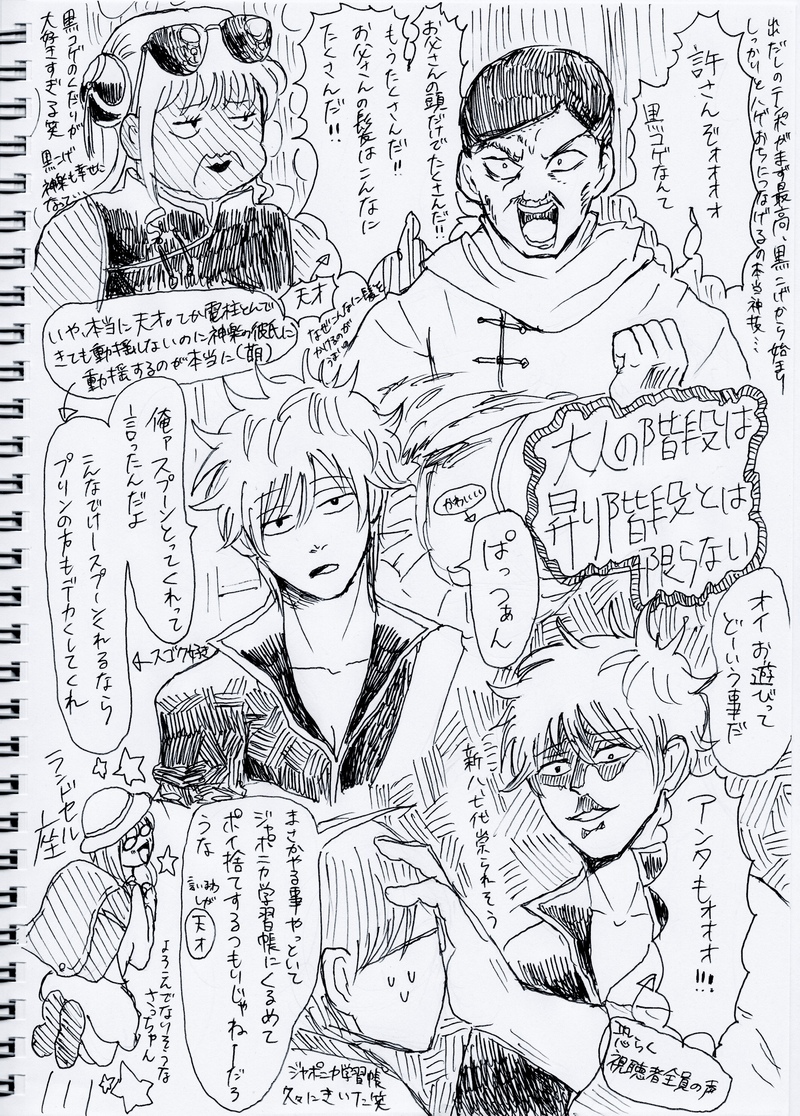 出だしのテンポがまず最高、黒こげから始まり
しっかりとハゲおちにつなげるの本当神技…
許さんぞォォォォ
黒コゲなんて
お父さんの頭だけでたくさんだ!!
もうたくさんだ!!
お父さんの髪はこんなに
たくさんだ!!
黒コゲのくだりが
大好きすぎる笑
黒こげ
神楽も幸せに
なって…
天才
なぜこんなに髪と
かけるのが
うまい
いや、本当に天才。てか電柱とんで
きても動揺しないのに神楽の彼氏に
動揺するのが本当に(萌)
大人の階段は
昇り階段とは
限らない
俺ァスプーンとってくれって
言ったんだよ
こんなでけースプーンくれるなら
プリンの方もデカくしてくれ
←スゴク好き
かわいい
ぱっつぁん
オイ お遊びって
どーいう事だ
新八七代祟られそう
アンタもォォォ!!!
恐らく
視聴者全員の声
まさかやる事やっといて
ジャポニカ学習帳にくるめて
ポイ捨てするつもりじゃねーだろ
うな
言いまわ
しが
天才
ジャポニカ学習帳
久々にきいた笑
ランドセル
座
よろこんでないそうな
さっちゃん